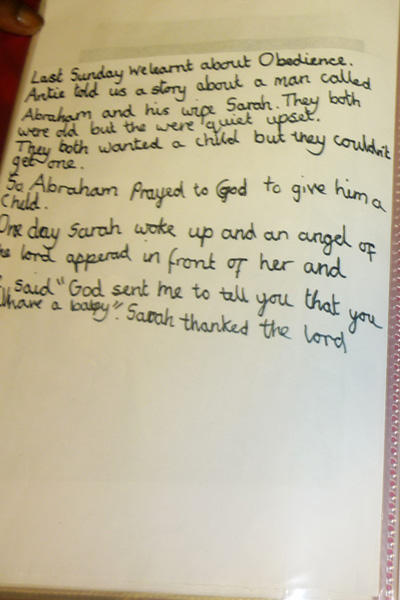 Last Sunday We learnt about Obedience.
Antie told us a story about a man called
Abraham and his wife Sarah. They both
were old but the were quiet upset.
They both wanted a child but they couldn't
get one.
So Abraham Prayed to God to give him a
Child.
One day Sarah woke up and an angel of
he lord apperad in front of her and
said "God sent me to tell you that you
have a baby". Sarah thanked the lord